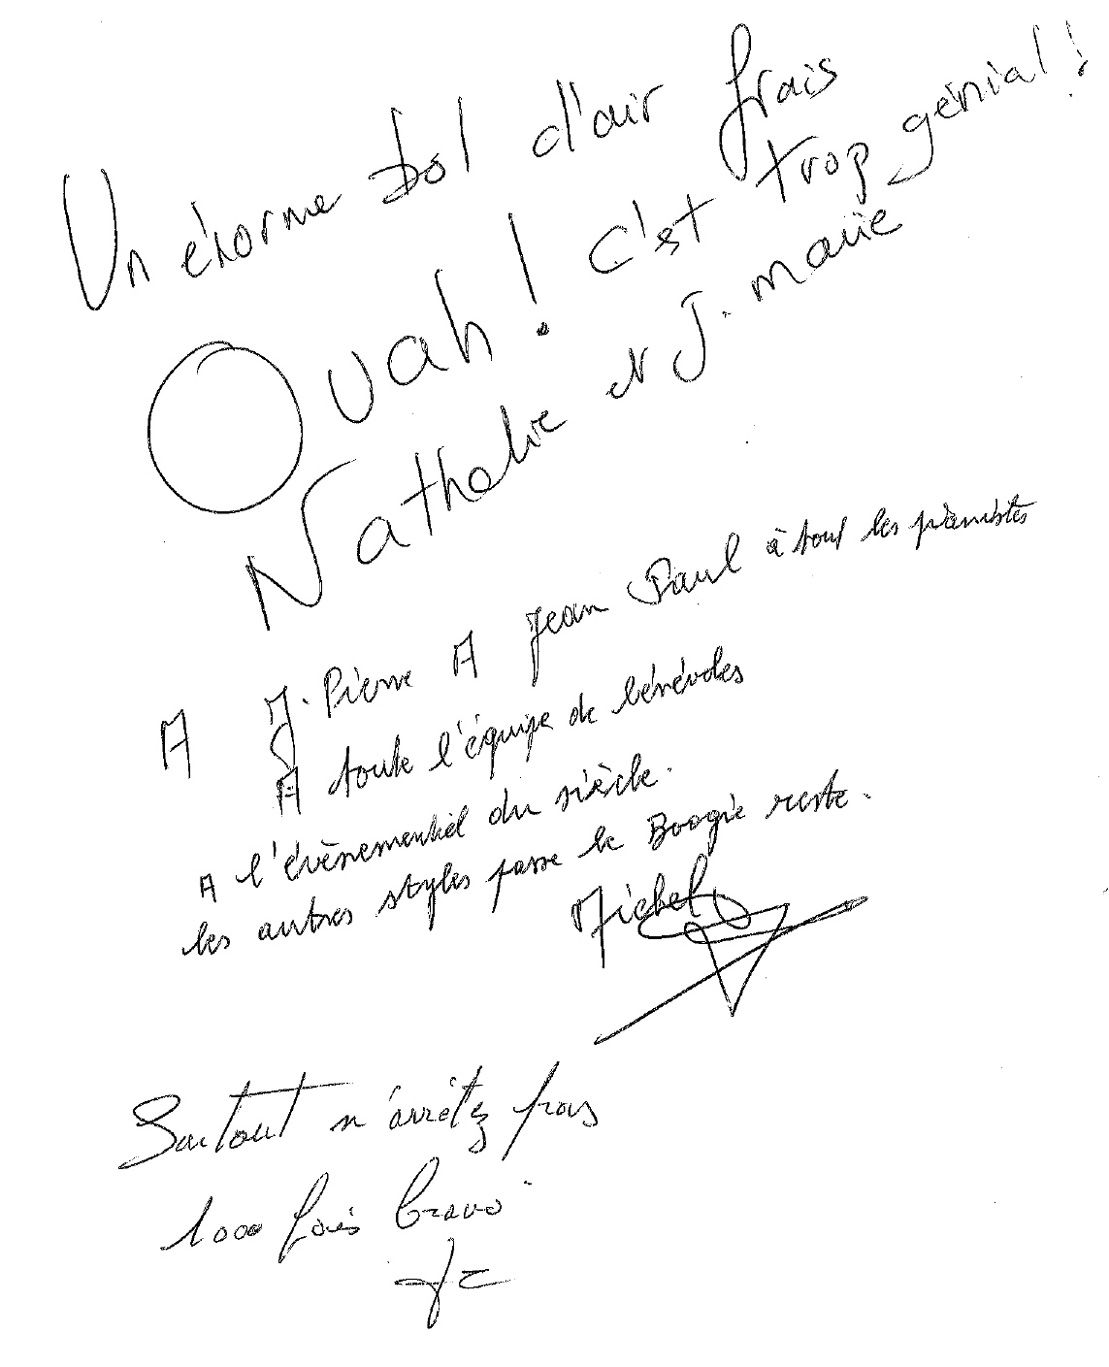 Un énorme bol d'air frais
Ouah ! C'est trop génial !
Nathalie et J. Marie
A J. Pierre A Jean Paul à tous les pianistes
A toute l'équipe de bénévoles
A l'évènementiel du siècle.
les autres styles passe le Boogie reste.
Michel
Surtout n'arrêtez pas
1000 fois bravo